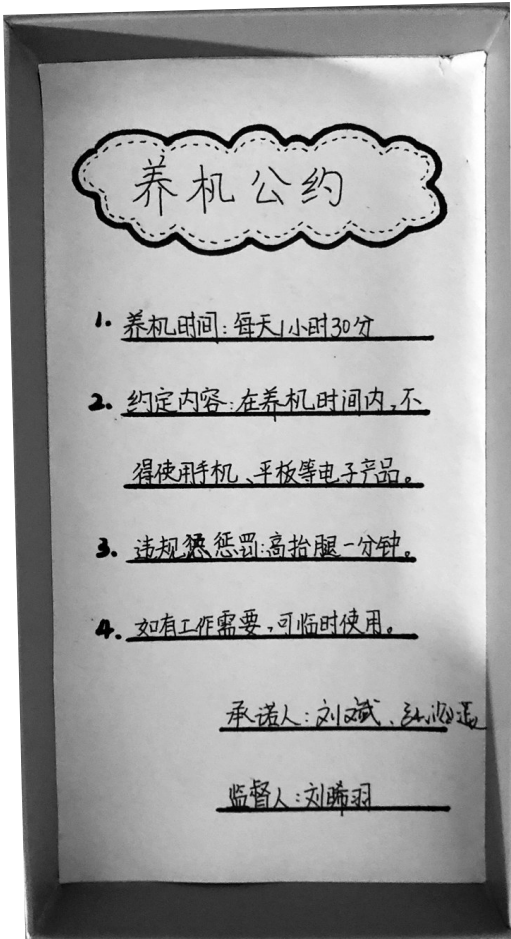 养机公约
1. 养机时间：每天1小时30分
2. 约定内容：在养机时间内，不
得使用手机、平板等电子产品。
3. 违规惩罚：高抬腿一分钟。
4. 如有工作需要，可临时使用。
承诺人：刘斌、
监督人：刘晞羽